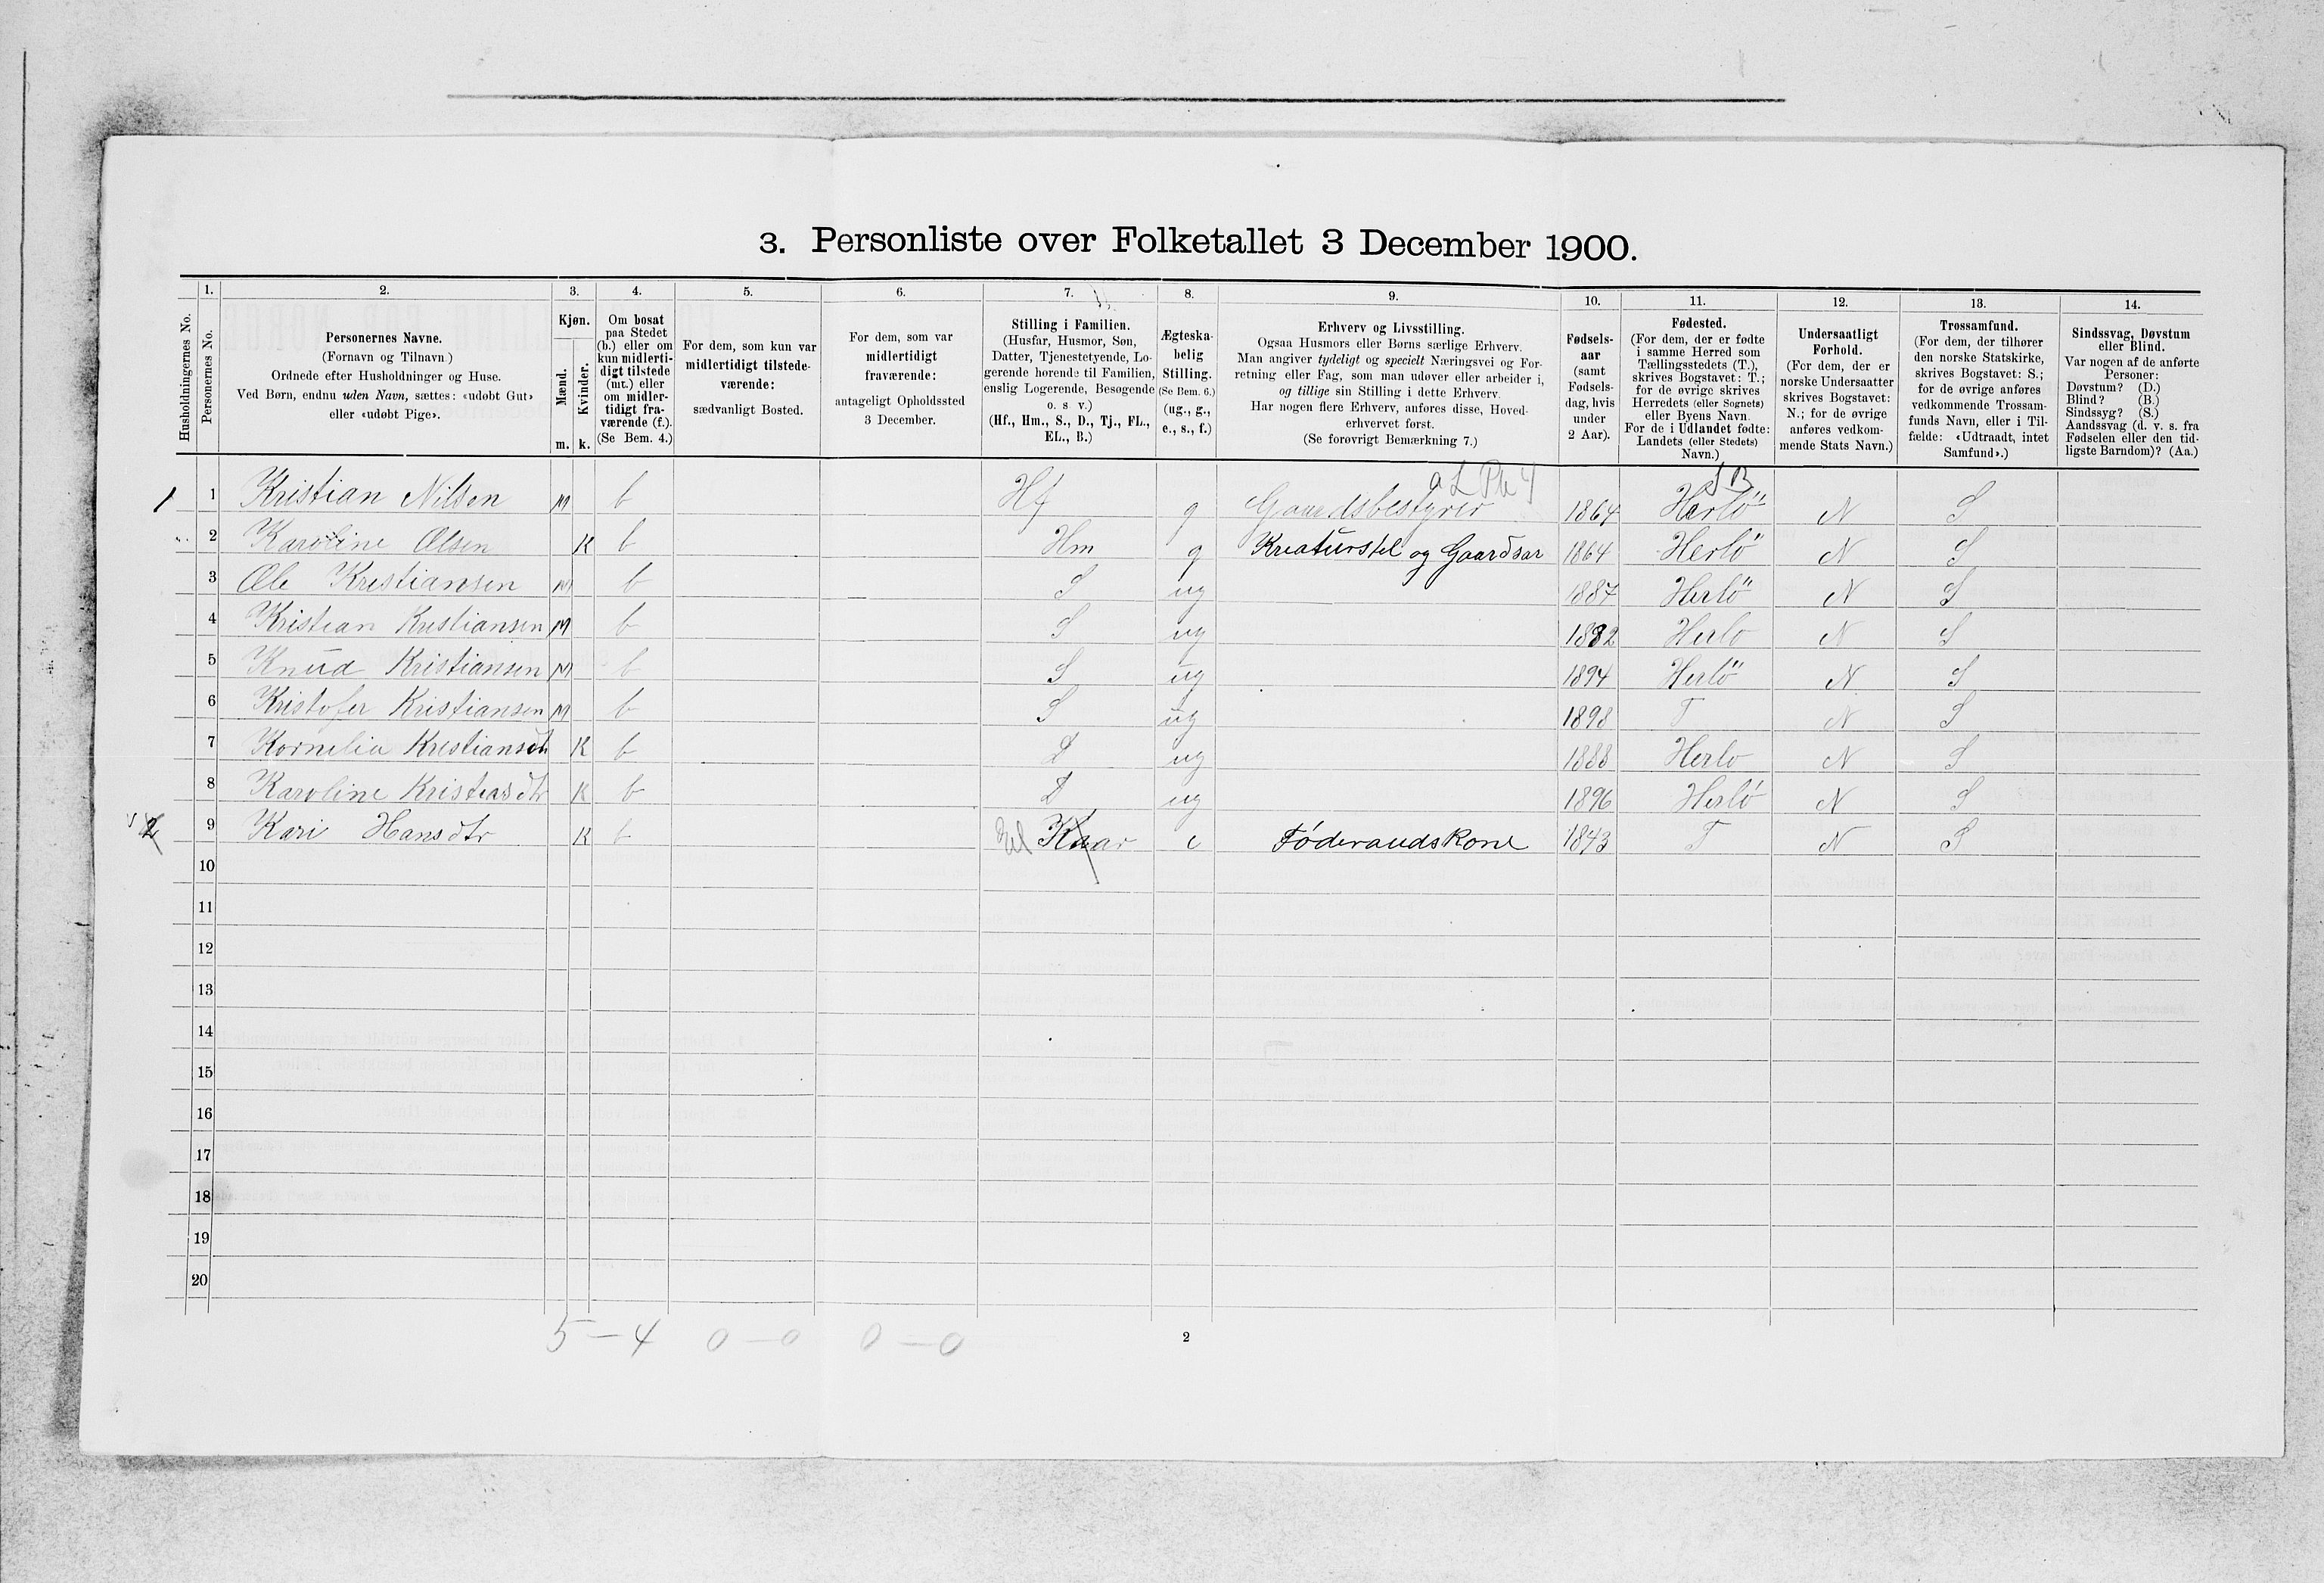 3. Personliste over Folketallet 3 December 1900.
Husholdningernes No.
1. Personernes No.
2. Personernes Navne.
(Fornavn og Tilnavn.)
Ordnede efter Husholdninger og Huse.
Ved Børn, endnu uden Navn, sættes: «udøbt Gut»
eller «udøbt Pige».
3. Kjøn.
Mænd. m.
Kvinder. k.
4. Om bosat
paa Stedet
(b.) eller om
kun midlerti-
digt tilstede
(mt.) eller
om midler-
tidigt fra-
værende (f.).
(Se Bem. 4.)
5. For dem, som kun var
midlertidigt tilstede-
værende:
sædvanligt Bosted.
6. For dem, som var
midlertidigt
fraværende:
antageligt Opholdssted
3 December.
7. Stilling i Familien.
(Husfar, Husmor, Søn,
Datter, Tjenestetyende, Lo-
gerende hørende til Familien,
enslig Logerende, Besøgende
o. s. v.)
(Hf., Hm., S., D., Tj., FL.,
EL., B.)
8. Ægteska-
belig
Stilling.
(Se Bem. 6.)
(ug., g.,
e., s., f.)
9. Erhverv og Livsstilling.
Ogsaa Husmors eller Børns særlige Erhverv.
Man angiver tydeligt og specielt Næringsvei og For-
retning eller Fag, som man udøver eller arbeider i,
og tillige sin Stilling i dette Erhverv.
Har nogen flere Erhverv, anføres disse, Hoved-
erhvervet først.
(Se forøvrigt Bemærkning 7.)
10. Fødsels-
aar
(samt
Fødsels-
dag, hvis
under
2 Aar).
11. Fødested.
(For dem, der er fødte
i samme Herred som
Tællingsstedets (T.),
skrives Bogstavet: T.;
for de øvrige skrives
Herredets (eller Sognets)
eller Byens Navn.
For de i Udlandet fødte:
Landets (eller Stedets)
Navn.)
12. Undersaatligt
Forhold.
(For dem, der er
norske Undersaatter
skrives Bogstavet:
N.; for de øvrige
anføres vedkom-
mende Stats Navn.)
13. Trossamfund.
(For dem, der tilhører
den norske Statskirke,
skrives Bogstavet: S.;
for de øvrige anføres
vedkommende Trossam-
funds Navn, eller i Til-
fælde: «Udtraadt, intet
Samfund».)
14. Sindssvag, Døvstum
eller Blind.
Var nogen af de anførte
Personer:
Døvstum? (D.)
Blind? (B.)
Sindssyg? (S.)
Aandssvag (d. v. s. fra
Fødselen eller den tid-
ligste Barndom)? (Aa.)
SB
1 1 Kristian Nilsen M b Hf g Gaardsbestyrer 1864 Herlö N S
2 Karoline Olsen K b Hm g Kreaturstel og Gaardsar 1864 Herlö N S
3 Ole Kristiansen M b S ug 1887 Herlö N S
4 Kristian Kristiansen M b S ug 1892 Herlo N S
5 Knud Kristiansen M b S ug 1894 Herlö N S
6 Kristofer Kristiansen M b S ug 1898 T N S
7 Kornelia Kristiansdt K b D ug 1888 Herlo N S
8 Karoline Kristiasdtr K b D ug 1896 Herlö N S
2 9 Kari Hansdtr K b El Kaar e Föderaadskone 1843 T N S
10
11
12
13
14
15
16
17
18
19
20
5 – 4 0 – 0 0 – 0
2